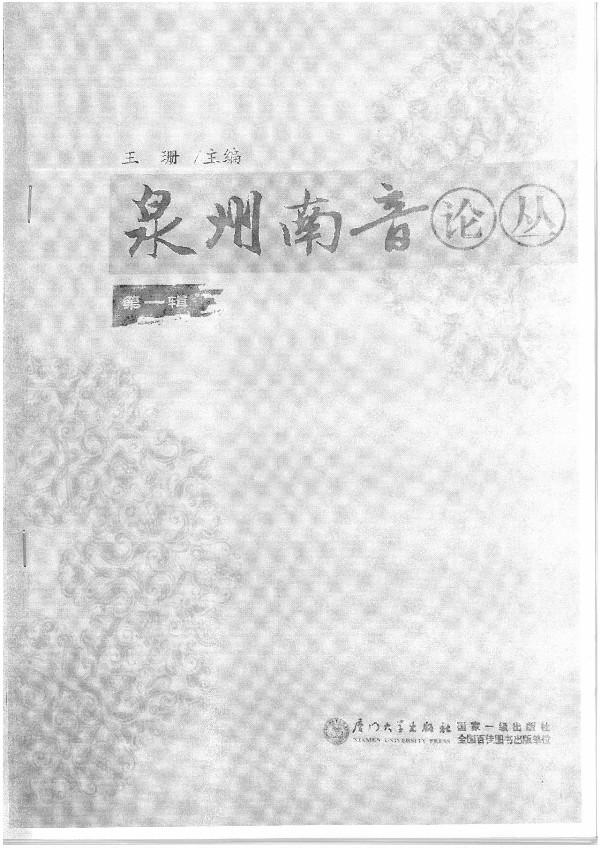 王 珊 /主编
泉州南音论丛
第一辑
厦门大学出版社 国家一级出版社
XIAMEN UNIVERSITY PRESS 全国百佳图书出版单位